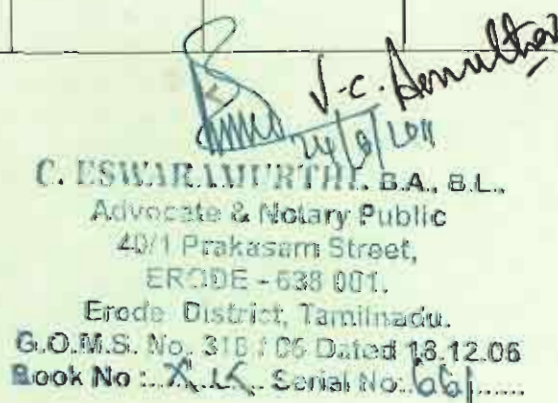 V.C.
24/8/2011
C. ESWARAMURTHI. B.A., B.L.,
Advocate & Notary Public
40/1 Prakasam Street,
ERODE - 638 001.
Erode District, Tamilnadu.
G.O.M.S. No. 318 / 06 Dated 18.12.06
Book No :.. X.I.X.. Serial No:.661......